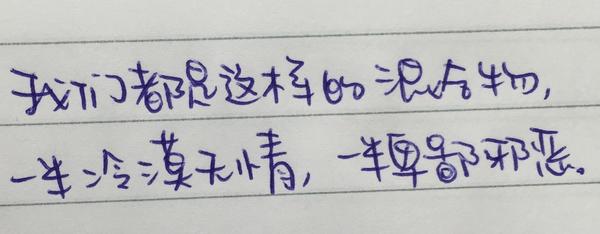 我们都是这样的混合物,
一半冷漠无情,一半卑鄙邪恶。